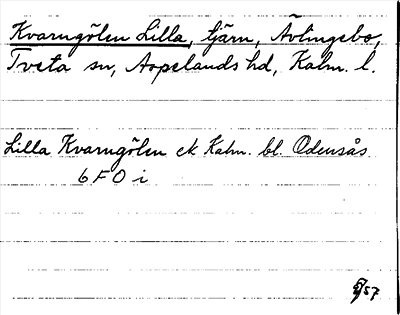 Kvarngölen Lilla, tjärn, Ävlingebo,
Tveta sn, Aspelands hd, Kalm. l.
Lilla Kvarngölen ek Kalm. bl. Odensås
6 F 0 i
57